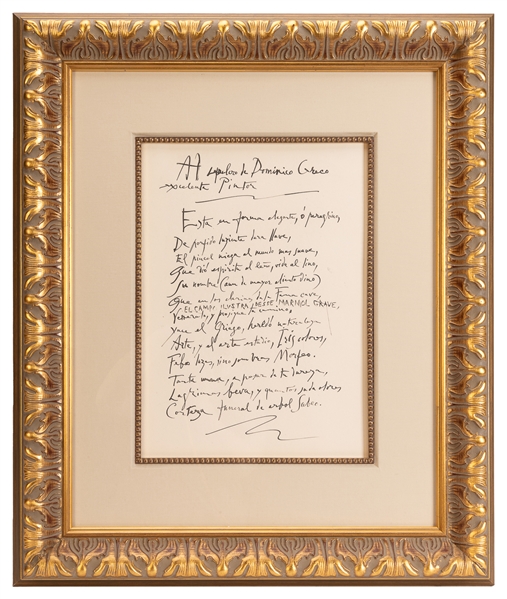 Al sepulcro de Dominico Greco
excelente Pintor
Esta en forma elegante, ó peregrino,
De porfido luciente dura llave,
El pincel niega al mundo mas suave,
Que dió espiritu al leño, vida al lino,
Su nombre (aun de mayor aliento dino)
Que en los clarines de la Fama cave,
EL CAMPO ILUSTRA DE ESE MARMOL GRAVE.
Veneralo, y prosigue tu camino,
Yace el Griego, heredó naturaleza
Arte, y el arte estudio, Iris colores,
Febo luzes, sino sombras Morfeo.
Tanta urna, a pesar de su dureza,
Lagrimas beva, y quantos suda olores
Corteza funeral de arbol Sabeo.